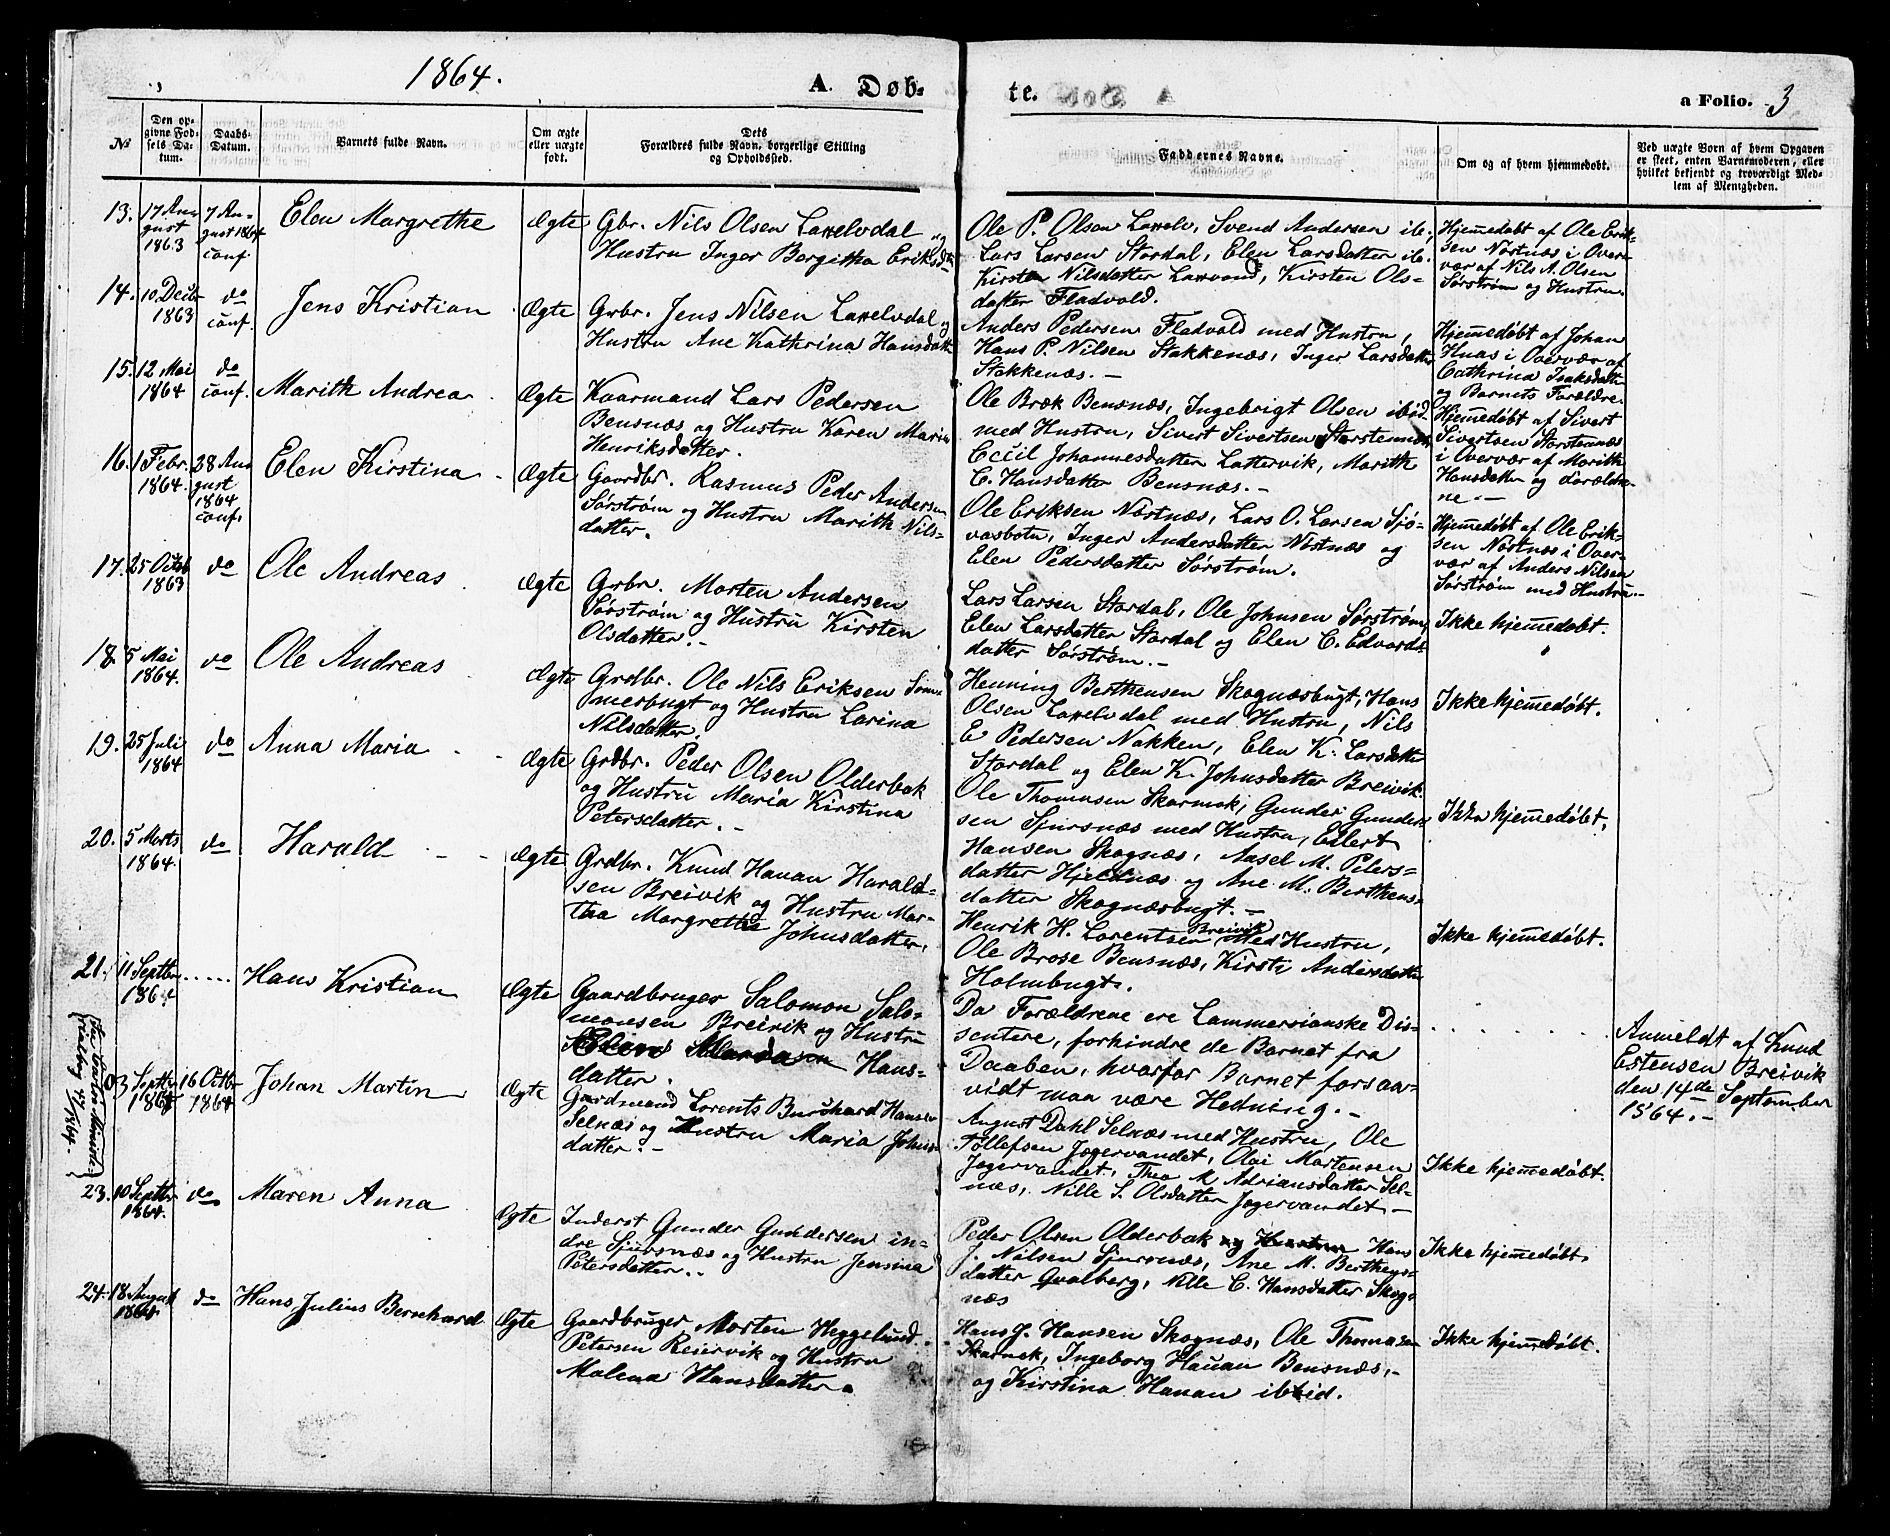 1864.
A. Døb-
te.
a Folio. 3
No
Den op-
givne Fød-
sels Da-
tum.
Daabs-
Datum.
Barnets fulde Navn.
Om ægte
eller uægte
født.
Dets
Forældres fulde Navn, borgerlige Stilling
og Opholdssted.
Faddernes Navne.
Om og af hvem hjemmedøbt.
Ved uægte Børn af hvem Opgaven
er skeet, enten Barnemoderen, eller
hvilket bekjendt og troværdigt Med-
lem af Menigheden.
13.
17 Au-
gust
1863
7 Au-
gust 1864
conf.
Elen Margrethe
Ægte
Gbr. Nils Olsen Laxelvdal og
Hustru Inger Borgitha Eriksdt
Ole P. Olsen Laxelv, Svend Andersen ib.,
Lars Larsen Stordal, Elen Larsdatter ib.
Kirsten Nilsdatter Laxvand, Kirsten Ols-
datter Fladvold.
Hjemmedøbt af Ole Erik-
sen Nordnæs i Over-
vær af Nils A. Olsen
Sørstrøm og Hustru.
14.
10 Decbr
1863
do
conf.
Jens Kristian
Ægte
Grbr. Jens Nilsen Laxelvdal og
Hustru Ane Kathrina Hansdatt
Anders Pedersen Fladvold med Hustru,
Hans P. Nilsen Stakkenæs, Inger Larsdatter
Stakkenæs. -
Hjemmedøbt af Johan
Huas i Overvær af
Cathrina Isaksdatter
og Barnets Forældre.
15.
12 Mai
1864
do
conf.
Marith Andrea
Ægte
Kaarmand Lars Pedersen
Bensnæs og Hustru Karen Maria
Henriksdatter.
Ole Bræk Bensnæs, Ingebrigt Olsen ibid.
med Hustru, Sivert Sivertsen Storstennæs
Ecciil Johannesdatter Lattervik, Marith
C. Hansdatter Bensnæs. -
Hjemmedøbt af Sivert
Sivertsen Storstennæs
i Overvær af Marith
Hansdatter og Forældre-
ne. -
16.
1 Febr.
1864.
28 Au
gust
1864
conf.
Elen Kirstina
Ægte
Gaardbr. Rasmus Peder Andersen
Sørstrøm og Hustru Marith Nils-
datter.
Ole Eriksen Nordnæs, Lars O. Larsen Sjø-
vasbotn, Inger Andersdatter Nordnæs og
Elen Pedersdatter Sørstrøm.
Hjemmedøbt af Ole Erik-
sen Nordnæs i Over-
vær af Anders Nilsen
Sørstrøm med Hustru. -
17.
25 Octob
1863
do
Ole Andreas
Ægte
Grbr. Morten Andersen
Sørstrøm og Hustru Kirsten
Olsdatter. -
Lars Larsen Stordal, Ole Johnsen Sørstrøm,
Elen Larsdatter Stordal og Elen C. Edvards-
datter Sørstrøm. -
Ikke hjemmedøbt.
18
5 Mai
1864.
do
Ole Andreas
Ægte
Grdbr. Ole Nils Eriksen Søm-
merbugt og Hustru Larina
Nilsdatter.
Henning Berthensen Skognæsbugt, Hans
Olsen Laxelvdal med Hustru, Nils
E Pedersen Nakken, Elen K. Larsdatter
Stordal og Elen K. Johnsdatter Breivik
Ikke hjemmedøbt.
19.
25 Juli
1864
do
Anna Maria
Ægte
Grdbr. Peder Olsen Olderbak
og Hustru Maria Kirstina
Petersdatter. -
Ole Thomassen Skarmok, Gunder Gunder-
sen Sjursnæs med Hustru, Eilert
Hansen Skognæs, Aasel M. Peters-
datter Hjelnæs og Ane M. Berthens-
datter Skognæsbugt. -
Ikke hjemmedøbt.
20.
5 Marts
1864.
do
Harald
Ægte
Grdbr. Knud Hanan Harald-
sen Breivik og Hustru Mar-
tha Margretha Johnsdatter.
Henrik H. Lorentsen Breivik Med Hustru,
Ole Brose Bensnæs, Kirsti Andersdatter
Holmbugt.
Ikke hjemmedøbt.
21.
11 Septbr.
1864
......
Hans Kristian
Ægte
Gaardbruger Salomon Salo-
monsen Breivik og Hustru
Hans-
datter.
Da Forældrene ere Lammersianske Dis-
sentere, forhindre de Barnet fra
Daaben, hvorfor Barnet forsaa-
vidt maa være Hedning. -
Anmeldt af Knud
Estensen Breivik
den 14de September
1864. -
3 Septbr
1864
16 Octbr
1864
Johan Martin
Ægte
Gaardmand Lorents Burchard Hansen
Selnæs og Hustru Maria Johns-
datter. -
August Dahl Selnæs med Hustru, Ole
Tollefsen Jægervandet, Olai Mortensen
Jægervandet, Thea M. Adriansdatter Sel-
næs, Nille S. Olsdatter Jægervandet -
Ikke hjemmedøbt.
23.
10 Septbr
1864.
do
Maren Anna
Ægte
Inderst Gunder Gundersen in-
dre Sjursnæs og Hustru Jensina
Petersdatter..
Peder Olsen Olderbak og Hustru Hans
J. Nilsen Sjursnæs, Ane M. Berthens-
datter Qvalberg, Nille C. Hansdatter Skog-
næs
Ikke hjemmedøbt.
24.
18 August
1864.
do
Hans Julius Bernhard
Ægte
Gaardbruger Morten Heggelund
Petersen Reiervik og Hustru
Malena Hansdatter.
Hans J. Hansen Skognæs, Ole Thomasen
Skarmok, Ingeborg Hauan Bensnæs, -
og Kirstina Hanan ibid.
Ikke hjemmedøbt.